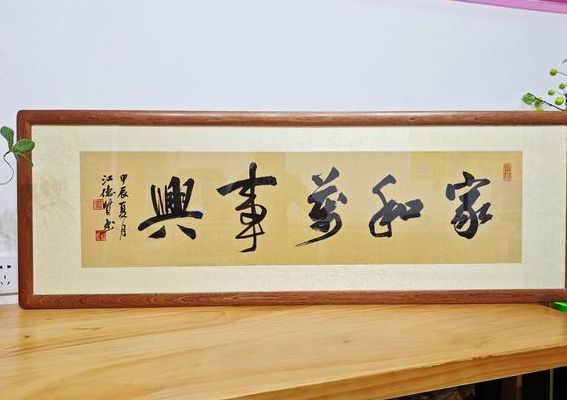 家和萬事興
甲辰夏月
江德賢书